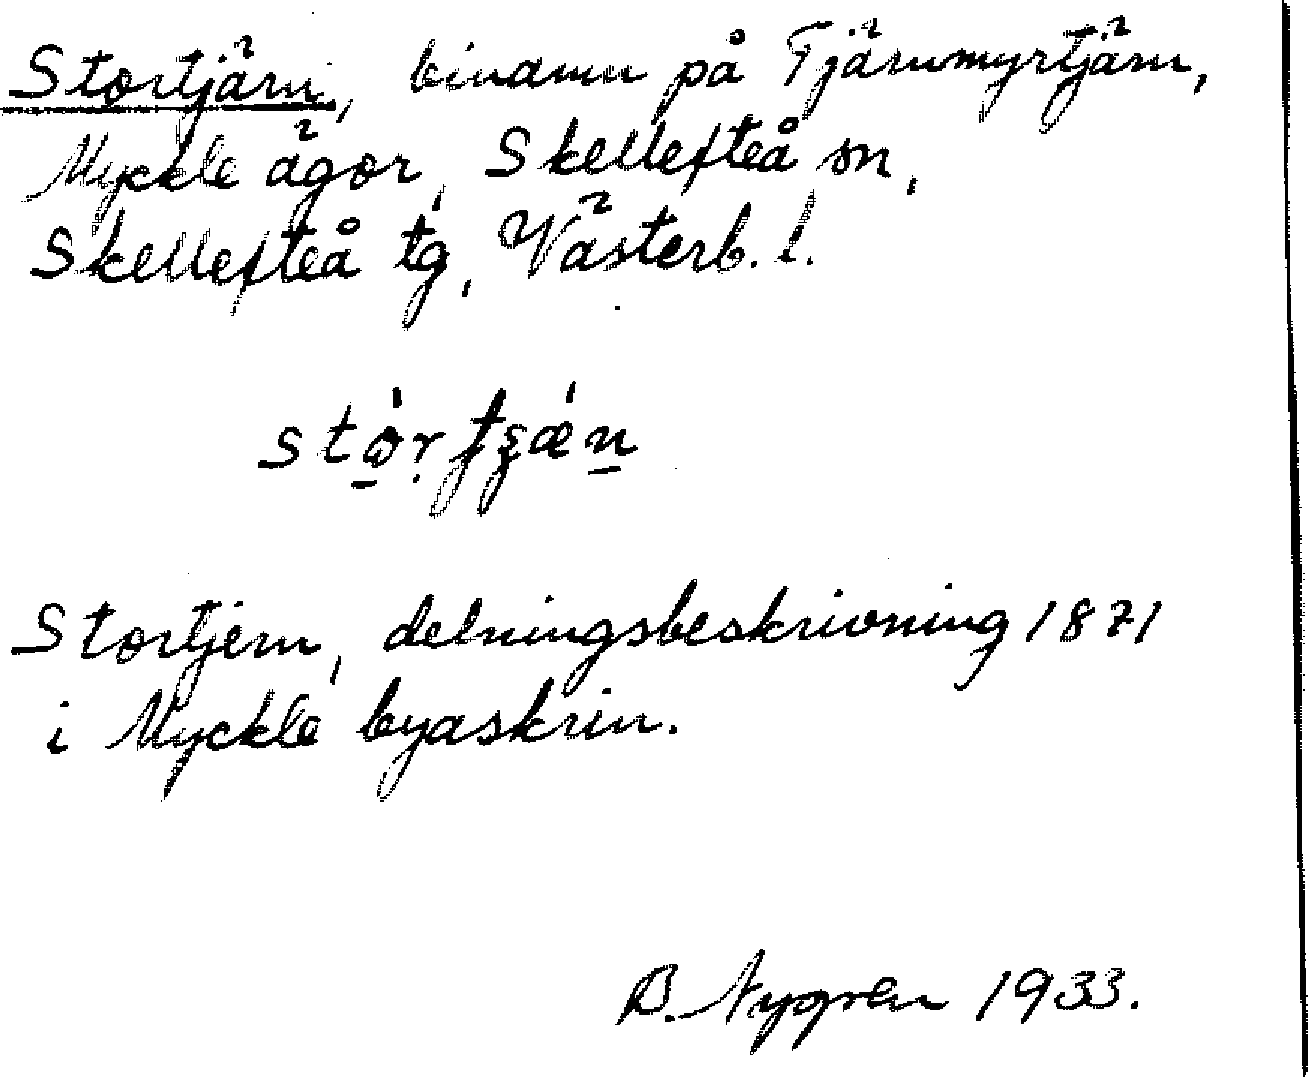 Stortjärn, binamn på Tjärnmyrtjärn,
Myckle ägor, Skellefteå sn,
Skellefteå tg, Västerb. l.
Stortjern, delningsbeskrivning 1871
i Myckle byaskrin.
B. Nygren 1933.